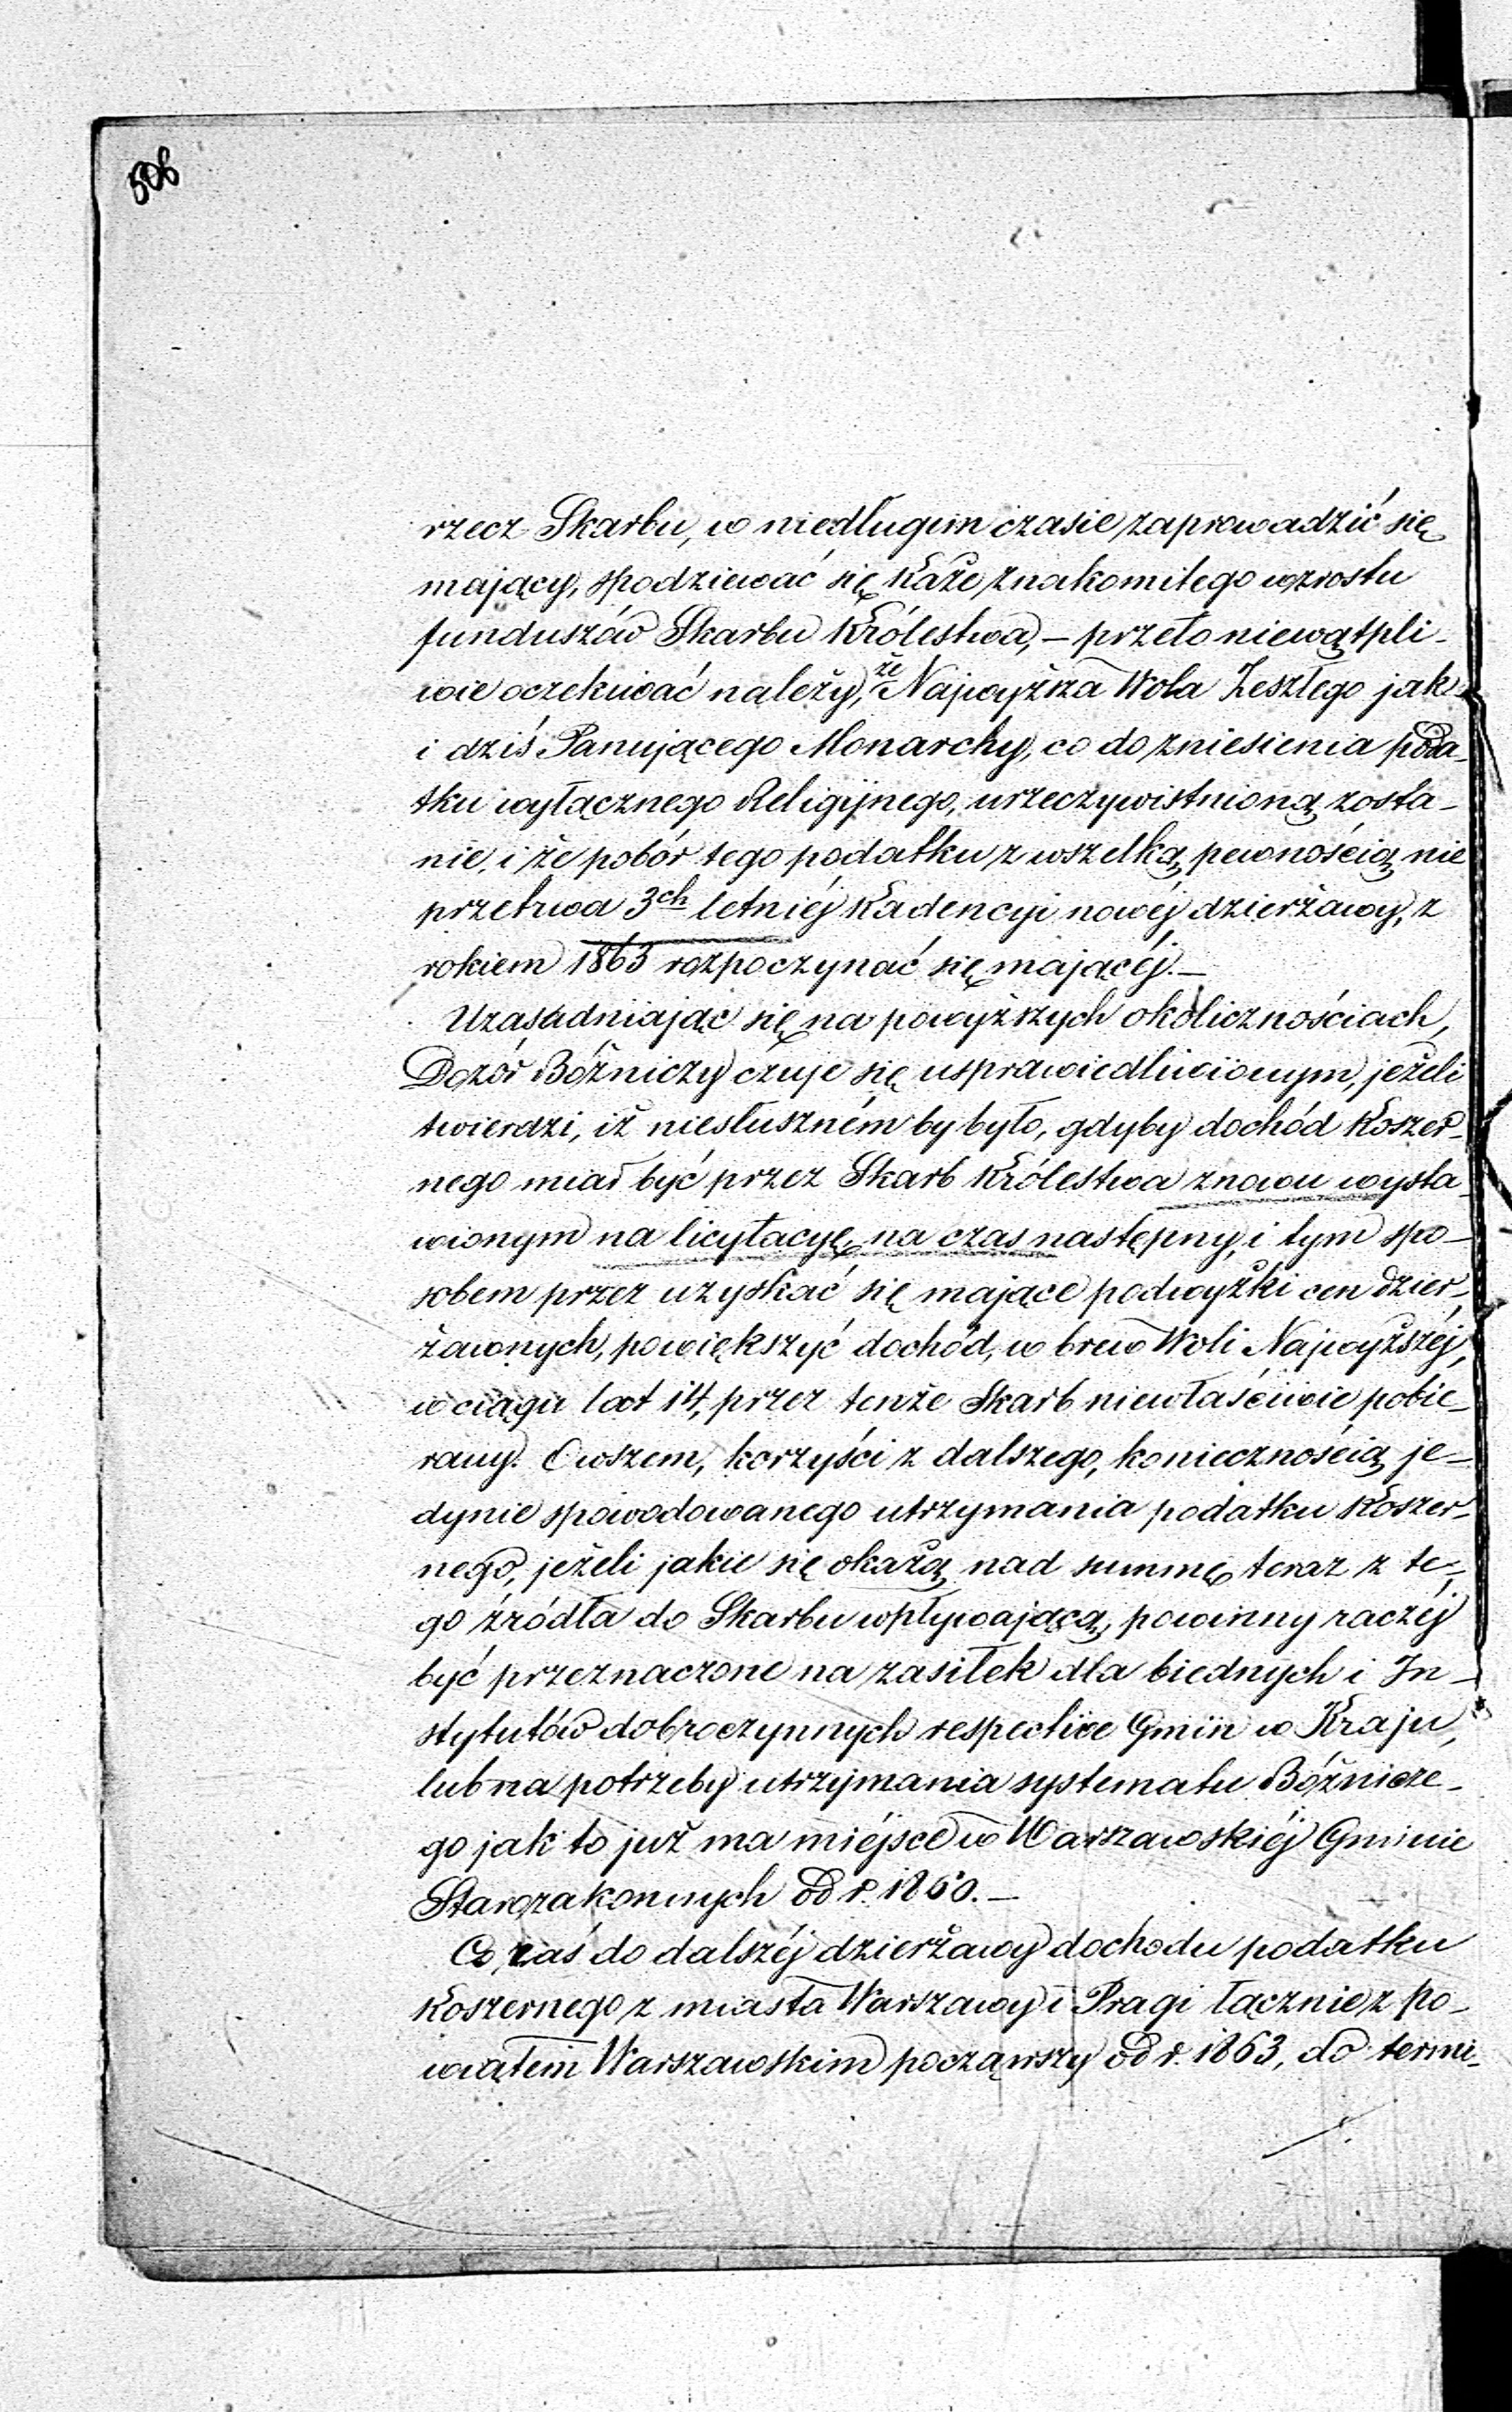 506
rzecz Skarbu, w niedługim czasie zaprowadzić się
mający, spodziewać się każe znakomitego wzrostu
funduszów Skarbu Królestwa, – przeto niewątpli-
wie oczekiwać należy, że Najwyższa Wola Zeszłego jak
i dziś Panującego Monarchy, co do zniesienia poda-
tku wyłącznego Religijnego, urzeczywistnioną zosta-
nie, i że pobór tego podatku z wszelką pewnością nie
przetrwa 3ch letniéj Kadencyi nowéj dzierżawy, z
rokiem 1863 rozpoczynać się mającéj. –
Uzasadniając się na powyższych okolicznościach,
Dozór Bóżniczy czuje się usprawiedliwionym, jeżeli
twierdzi, iż niesłuszném by było, gdyby dochód Koszer-
nego miał być przez Skarb Królestwa znowu wysta-
wionym na licytacyę, na czas następny, i tym spo-
sobem przez uzyskać się mające podwyżki cen dzier-
żawnych, powiększyć dochód, w brew Woli Najwyższéj,
w ciągu lat 14, przez tenże Skarb niewłaściwie pobie-
rany. Owszem, korzyści z dalszego, koniecznością je-
dynie spowodowanego utrzymania podatku Koszer-
nego, jeżeli jakie się okażą nad summę teraz z te-
go źródła do Skarbu wpływającą, powinny raczéj
być przeznaczone na zasiłek dla biednych i In-
stytutów dobroczynnych respective Gmin w Kraju,
lub na potrzeby utrzymania systematu Bóżnicze-
go jak to już ma miéjsce w Warszawskiéj Gminie
Starozakonnych od r. 1860. –
Co zaś do dalszéj dzierżawy dochodu podatku
Koszernego z miasta Warszawy i Pragi łącznie z po-
wiatem Warszawskim począwszy od r. 1863, do termi-